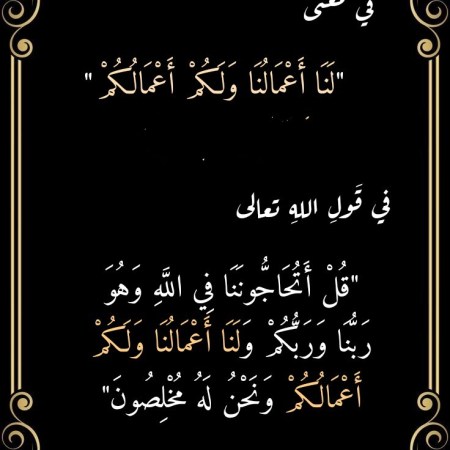 في معنى
"لَنَا أَعْمَالُنَا وَلَكُمْ أَعْمَالُكُمْ"
في قَولِ اللهِ تعالى
"قُلْ أَتُحَاجُّونَنَا فِي اللَّهِ وَهُوَ
رَبُّنَا وَرَبُّكُمْ وَلَنَا أَعْمَالُنَا وَلَكُمْ
أَعْمَالُكُمْ وَنَحْنُ لَهُ مُخْلِصُونَ"